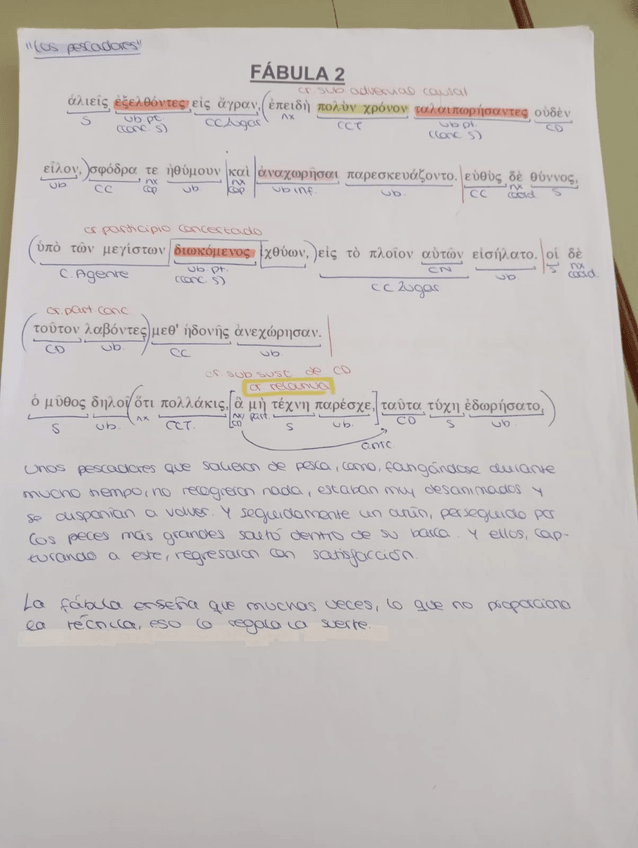 "Los pescadores"
FÁBULA 2
or sub adverbial causal
ἁλιεῖς ἐξελθόντες εἰς ἄγραν, (ἐπειδὴ πολὺν χρόνον ταλαιπωρήσαντες οὐδὲν
S vb. pt. (conc. S) CC Lugar nx CCT vb pt. (conc S) CD
εἷλον,) σφόδρα τε ἠθύμουν καὶ ἀναχωρῆσαι παρεσκευάζοντο. εὐθὺς δὲ θύννος,
vb CC nx cop vb nx cop vb inf. vb. CC nx coord. S
or participio concertado
(ὑπὸ τῶν μεγίστων διωκόμενος ἰχθύων,) εἰς τὸ πλοῖον αὐτῶν εἰσήλατο. οἱ δὲ
C. Agente vb pt. (conc S) CN CC Lugar vb S nx coord.
or part conc
(τοῦτον λαβόντες) μεθ' ἡδονῆς ἀνεχώρησαν.
CD vb. CC vb
or sub susc de CD
or relativa
ὁ μῦθος δηλοῖ (ὅτι πολλάκις, [ἃ μὴ τέχνη παρέσχε,] ταῦτα τύχη ἐδωρήσατο,)
S vb. nx CCT. nx/CD part. S vb. CD S vb.
antc
Unos pescadores que salieron de pesca, como, fatigándose durante
mucho tiempo, no recogieron nada, estaban muy desanimados y
se disponían a volver. Y seguidamente un atún, perseguido por
los peces más grandes saltó dentro de su barca. Y ellos, cap-
turando a este, regresaron con satisfacción.
La fábula enseña que muchas veces, lo que no proporciona
la técnica, eso lo regala la suerte.